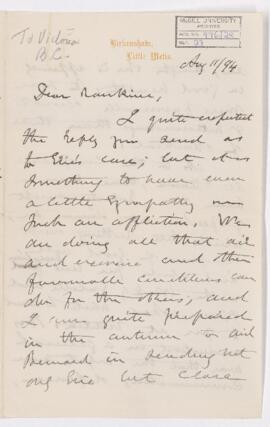 McGILL UNIVERSITY
ARCHIVES
ACC. NO.
REF. 27
To Victoria
B.C.
Birkenshade,
Little Metis.
Aug 11/94
Dear Rankine,
I quite expected
the reply you send as
to Eric's case; but it is
something to have even
a little sympathy in
such an affliction. We
are doing all that air
and exercise and other
favourable conditions can
do for the others, and
I am quite prepared
in the autumn to aid
Bernard in sending not
only Eric but Clare